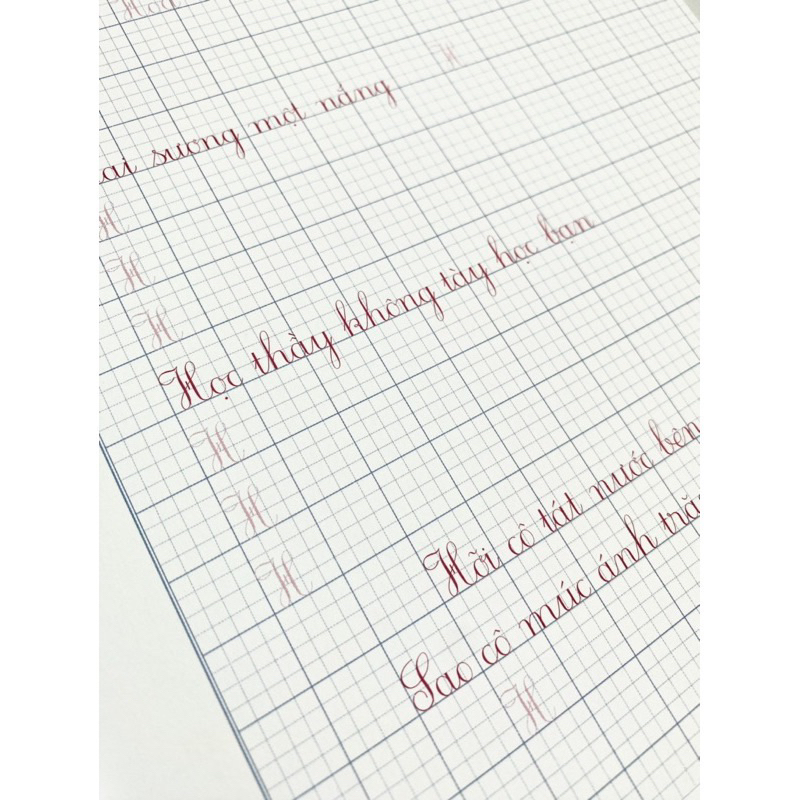 ai sương một nắng
H
H
H
H
Học thầy không tày học bạn
H
H
H
Hỡi cô tát nước bên
Sao cô múc ánh tră
H